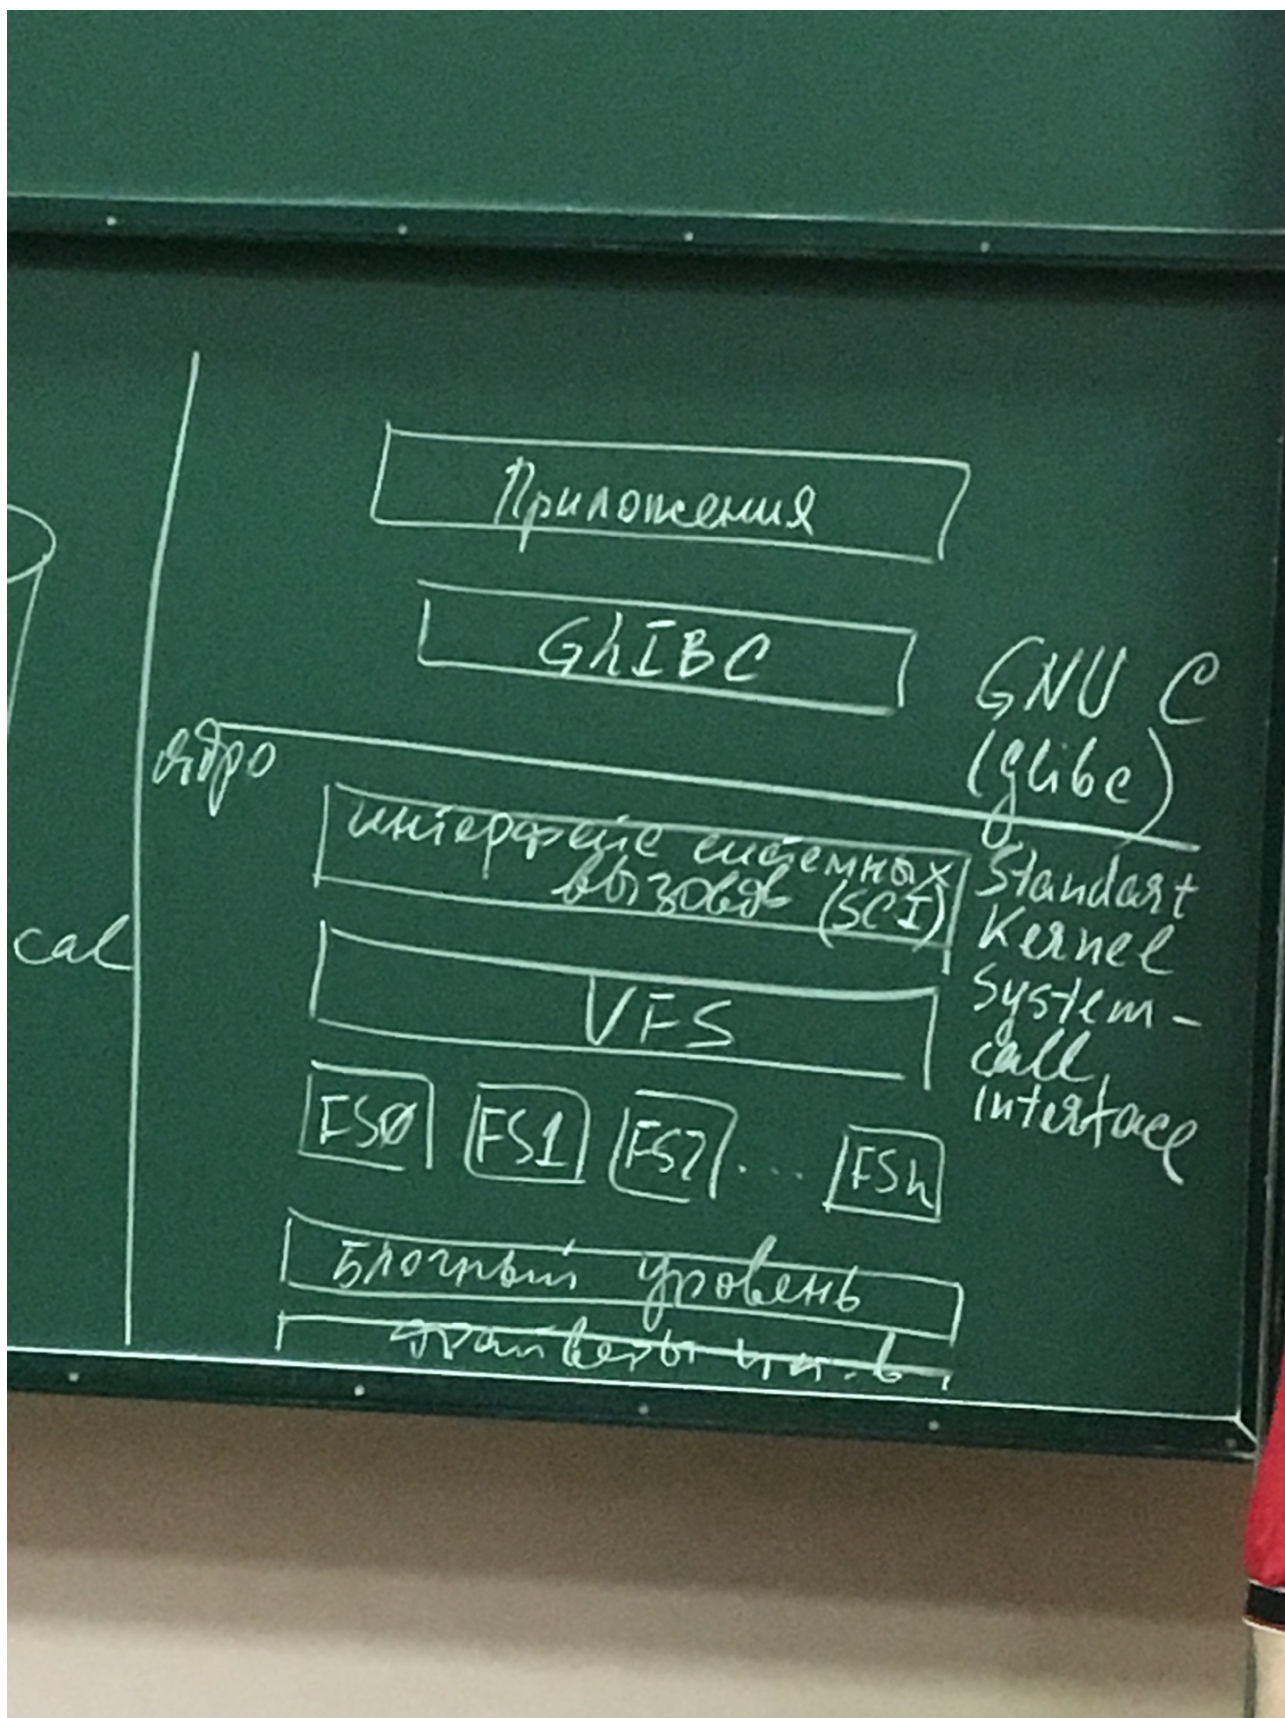 Приложения
GLIBC
GNU C
(glibc)
ядро
интерфейс системных
вызовов (SCI)
Standart
Kernel
system-
call
interface
cal
VFS
FS0 FS1 FS2 ... FSn
Блочный уровень
драйверы